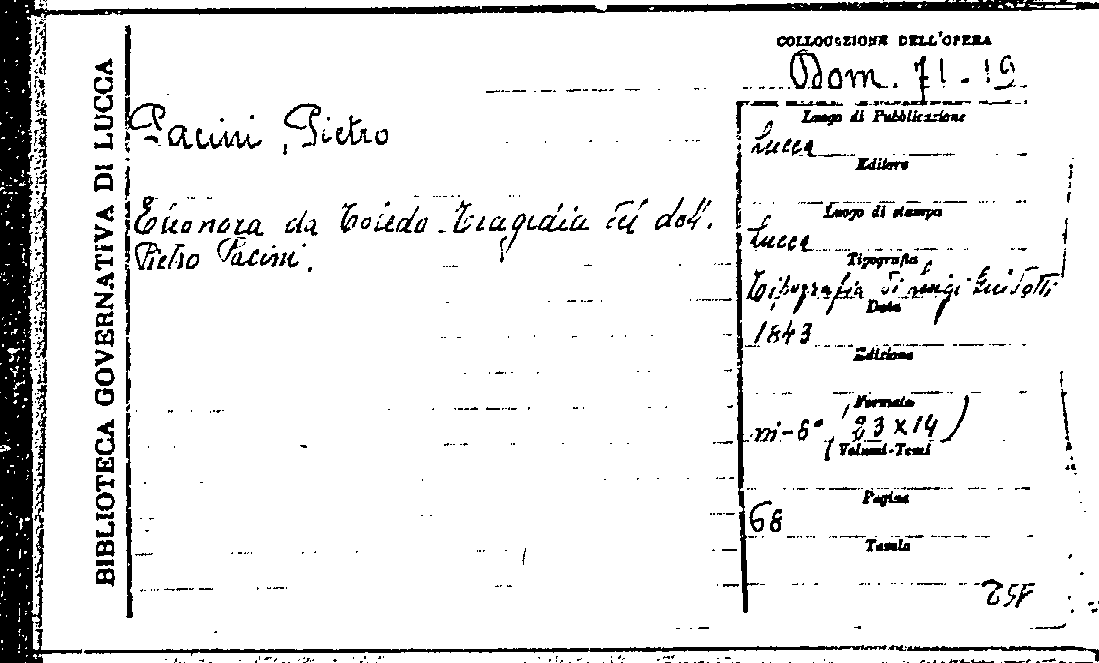 BIBLIOTECA GOVERNATIVA DI LUCCA
COLLOCAZIONE DELL'OPERA
Dom. 71-19
Pacini, Pietro
Eleonora da Toledo. Tragedia del dott.
Pietro Pacini.
Luogo di Pubblicazione
Lucca
Editore
Luogo di stampa
Lucca
Tipografia
Tipografia di Luigi Guidotti
Data
1843
Edizione
Formato
in-8° (23x14)
Volumi-Tomi
Pagine
68
Tavole